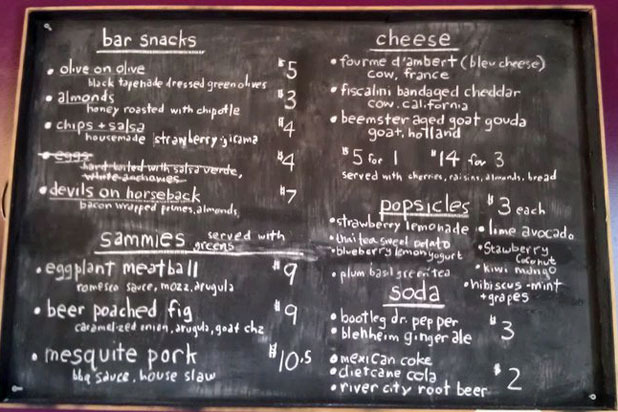 bar snacks
olive on olive $5
black tapenade dressed green olives
almonds $3
honey roasted with chipotle
chips + salsa $4
housemade strawberry-jicama
eggs $4
hard boiled with salsa verde,
white anchovies
devils on horseback $7
bacon wrapped prunes, almonds
sammies served with
greens
eggplant meatball $9
romesco sauce, mozz, arugula
beer poached fig $9
caramelized onion, arugula, goat chz
mesquite pork $10.5
bbq sauce, house slaw
cheese
fourme d'ambert (bleu cheese)
cow, france
fiscalini bandaged cheddar
cow, california
beemster aged goat gouda
goat, holland
$5 for 1 $14 for 3
served with cherries, raisins, almonds, bread
popsicles $3 each
strawberry lemonade
thai tea sweet potato
blueberry lemon yogurt
plum basil green tea
lime avocado
Stawberry
coconut
kiwi mango
hibiscus-mint
+ grapes
soda
bootleg dr. pepper
blenheim ginger ale
$3
mexican coke
diet cane cola
river city root beer
$2